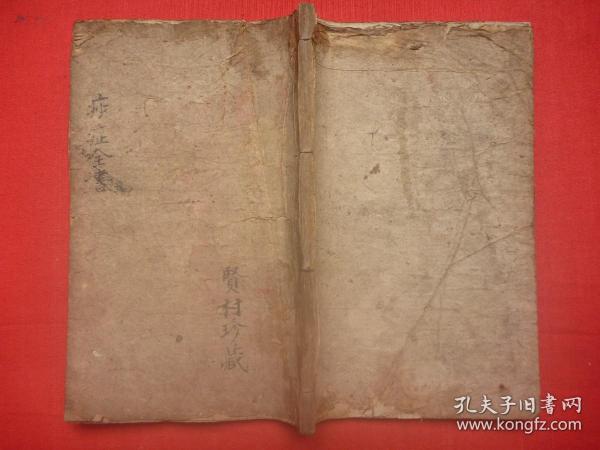 痧症全書
賢村珍藏
孔夫子旧書网
www.kongfz.com